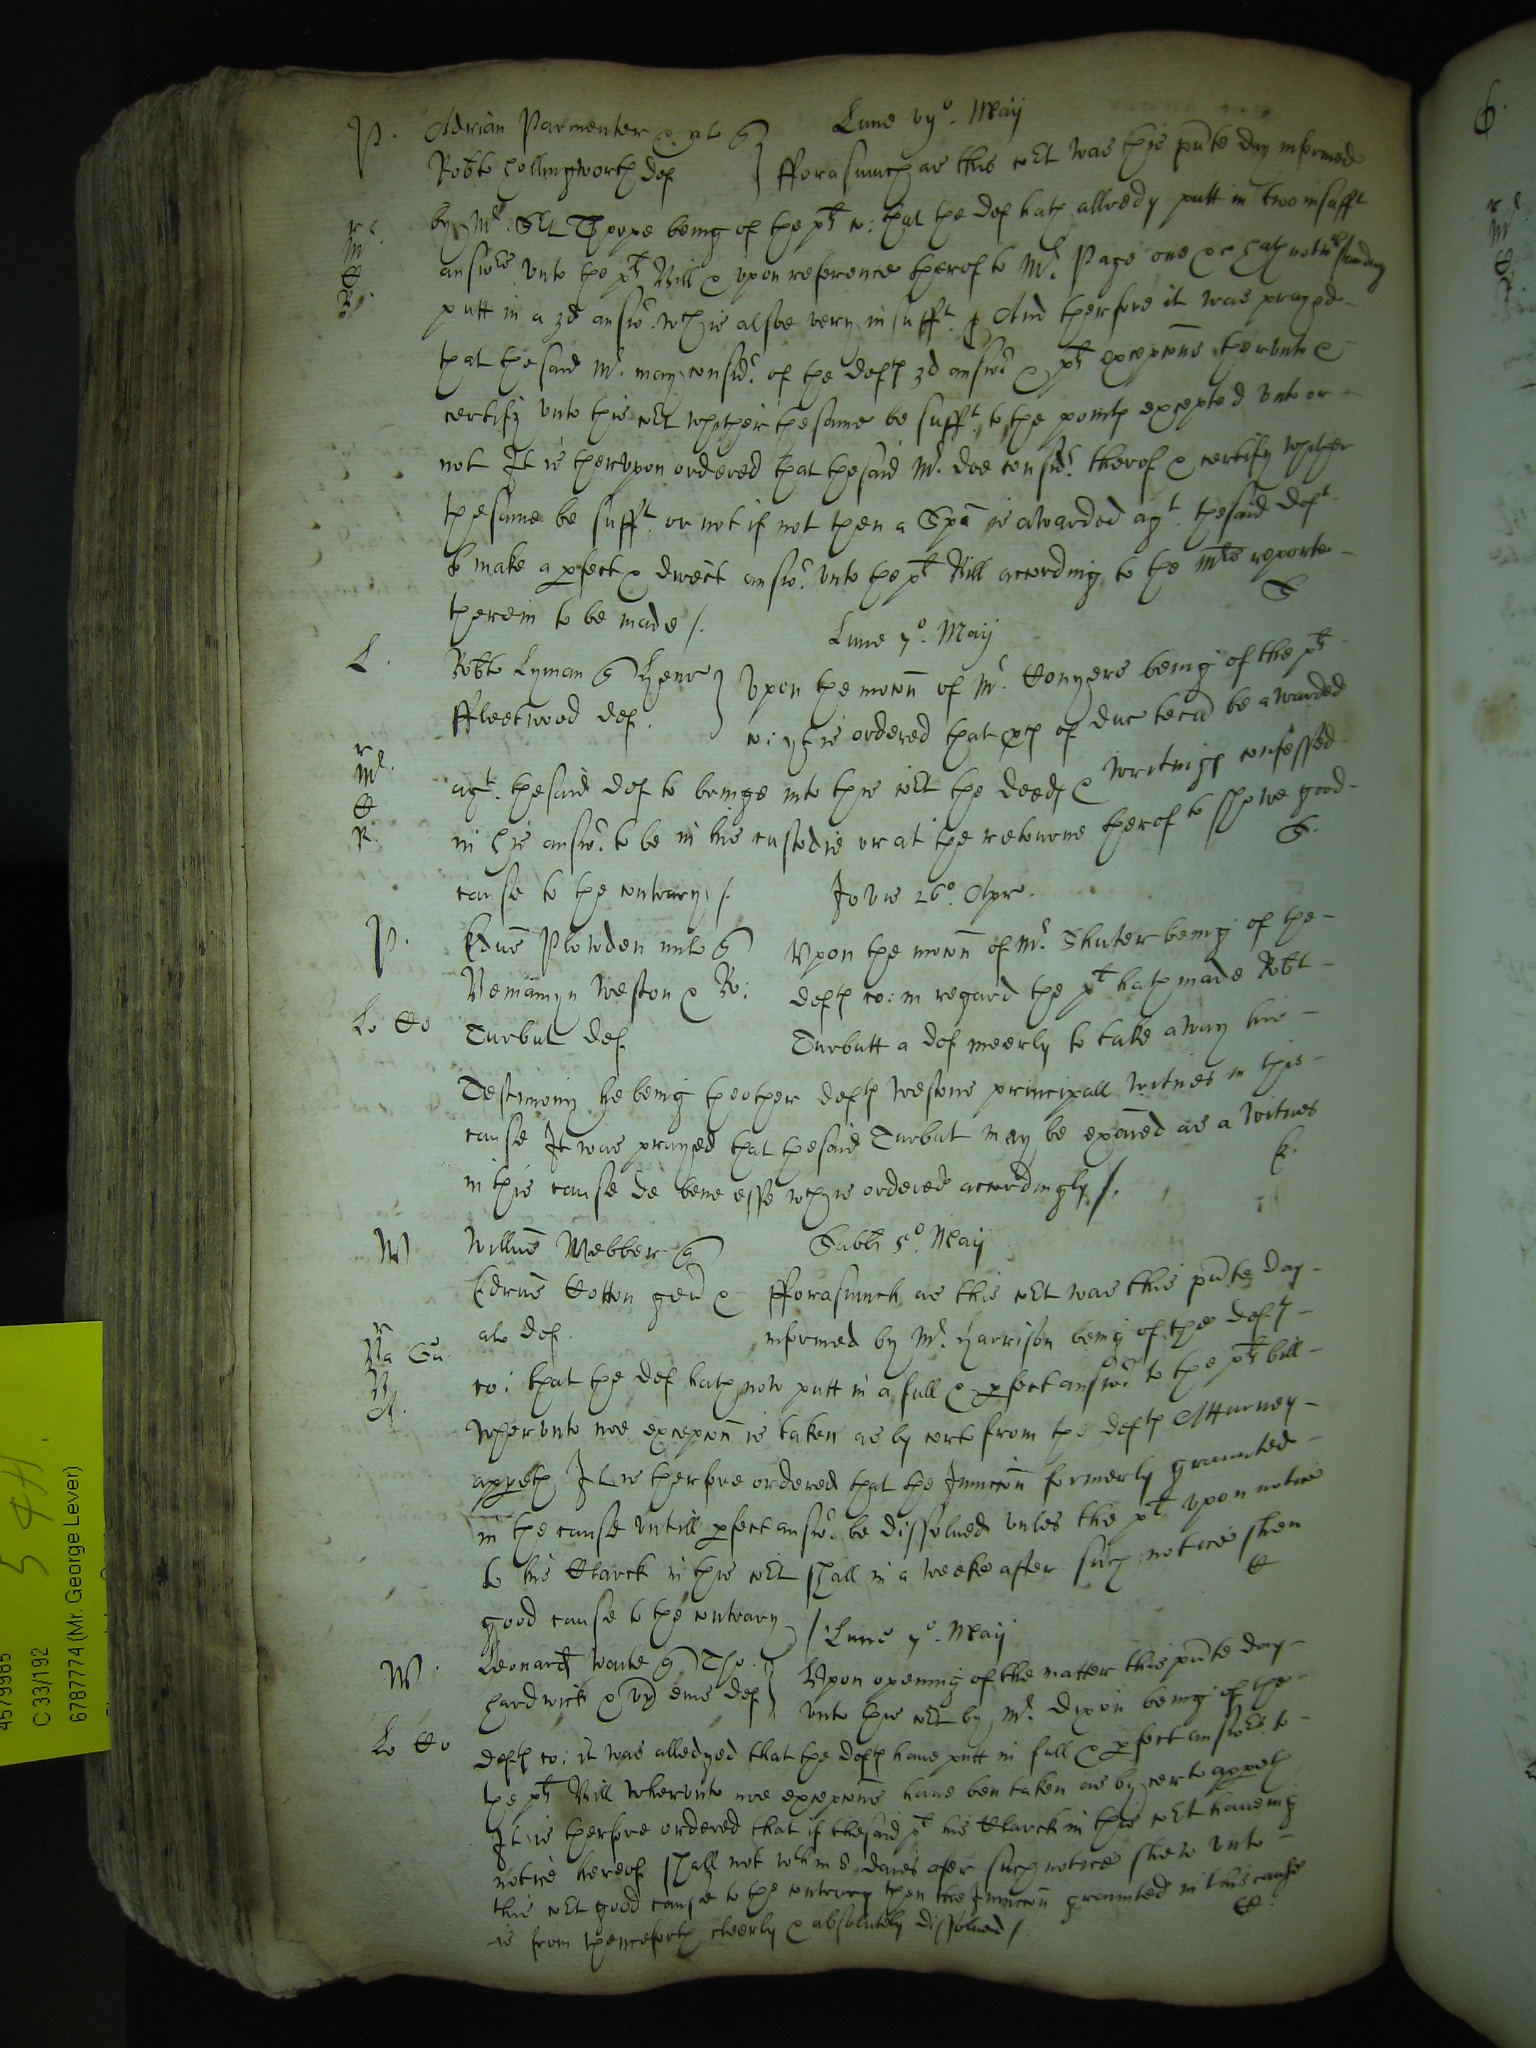 P. Adrian Parmenter & al q Lune vijo. Maij
Robte Hollingworth def } fforasmuch as this cort was this pnte day informed
by Mr. St Thorpe being of the pts co: that the def hath allredy putt in two insufft
Mr. answers unto the pts Bill & upon reference therof to Mr. Page one &c hath notwthstanding
putt in a 3d answ. wch is alsoe very insufft. And therfore it was prayed
that the said Mr. may consid. of the defts 3d answ. & pts excepcons therunto &
certify unto this cort whether the same be sufft. to the points excepted unto or
not It is therupon ordered that the said Mr. doe consid. therof & certify whether
the same be sufft. or not if not then a Spa is awarded agt. the said deft.
to make a perfect & direct answ. unto the pts Bill according to the Mrs reporte
therein to be made /. S
L. Lune 7o. Maij
Robte Lyman q Henr } Upon the mocon of Mr. Conyers being of the pts
ffleetwood def. co: yt is ordered that pch of duc tecu be awarded
Mr. agt. the said def to bringe into this cort the deeds & writings confessed
C
R. in his answ. to be in his custodie or at the retourne therof to shewe good
cause to the contrary /. S.
Jovis 26o. Apr.
P. Edrus Plowden mil q Upon the mocon of Mr. Shuter being of the
Beniamyn Weston & Ro: defts co: in regard the pt hath made Robt
Lo Co Turbut def Turbutt a def meerly to take away his
Testimony he being the other defts Westons principall witnes in this
cause It was prayed that the said Turbut may be exaied as a witnes
in this cause de bene esse wch is ordered accordingly /. E.
W Willms Webber q Sabbi 5o. Maij
Edrus Cotton gen & fforasmuch as this cort was this pnte day
al def. informed by Mr. Harrison being of the defts
co: that the def hath now putt in a full & perfect answ. to the pts bill
wherunto noe excepcon is taken as by cert from the defts Atturney
appeth It is therfore ordered that the Iniuncon formerly graunted
in the cause untill perfect answ. be dissolued unles the pt upon notice
to his Clarck in this cort shall in a weeke after such notice shew
good cause to the contrary /. C
Lune 7o. Maij
W. Leonard Waite q Tho: } Upon opening of the matter this pnte day
Hardwick & ux eius def unto this cort by Mr. Dixon being of the
Lo Co defts co: it was alledged that the defts haue putt in full & perfect answers to
the pts Bill wherunto noe excepcons haue ben taken as by cert appeth
It is therfore ordered that if the said pt his Clarck in this cort haueing
notice hereof shall not wthin 8 daies after such notice shew unto
this cort good cause to the contrary then the Iniuncon graunted in this cause
is from thenceforth cleerly & absolutely dissolued /. C.
C 33/192
6787774 (Mr. George Lever)